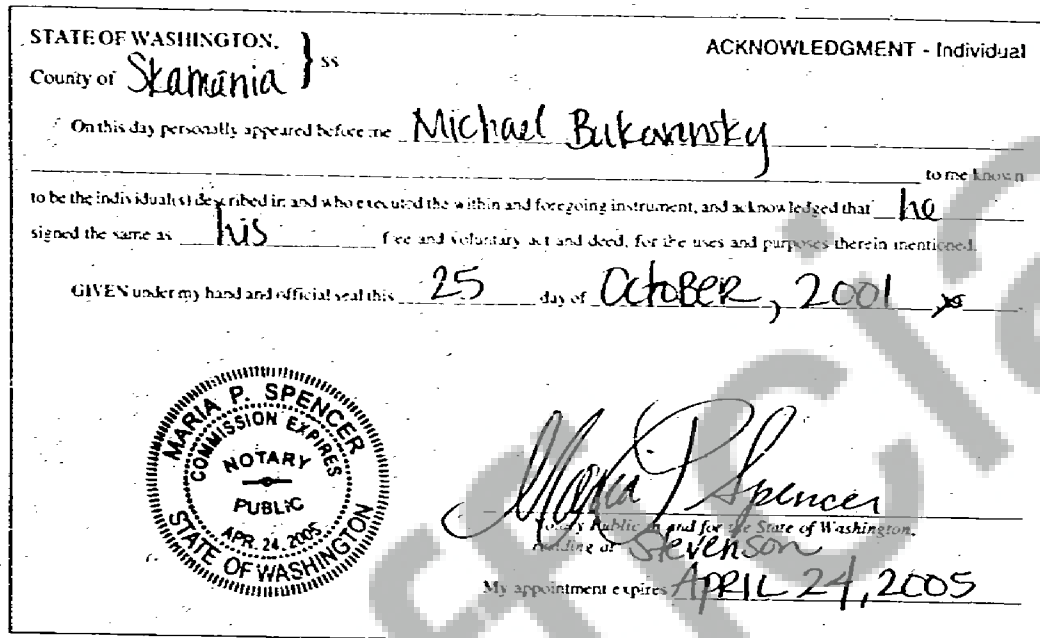 STATE OF WASHINGTON, } ss
ACKNOWLEDGMENT - Individual
County of Skamania
On this day personally appeared before me Michael Bukovansky
to me known
to be the individual(s) described in and who executed the within and foregoing instrument, and acknowledged that he
signed the same as his free and voluntary act and deed, for the uses and purposes therein mentioned.
GIVEN under my hand and official seal this 25 day of OctoBER, 2001
MARIA P. SPENCER
COMMISSION EXPIRES
NOTARY
PUBLIC
APR. 24, 2005
STATE OF WASHINGTON
Maria P Spencer
Notary Public in and for the State of Washington,
residing at Stevenson
My appointment expires APRIL 24, 2005